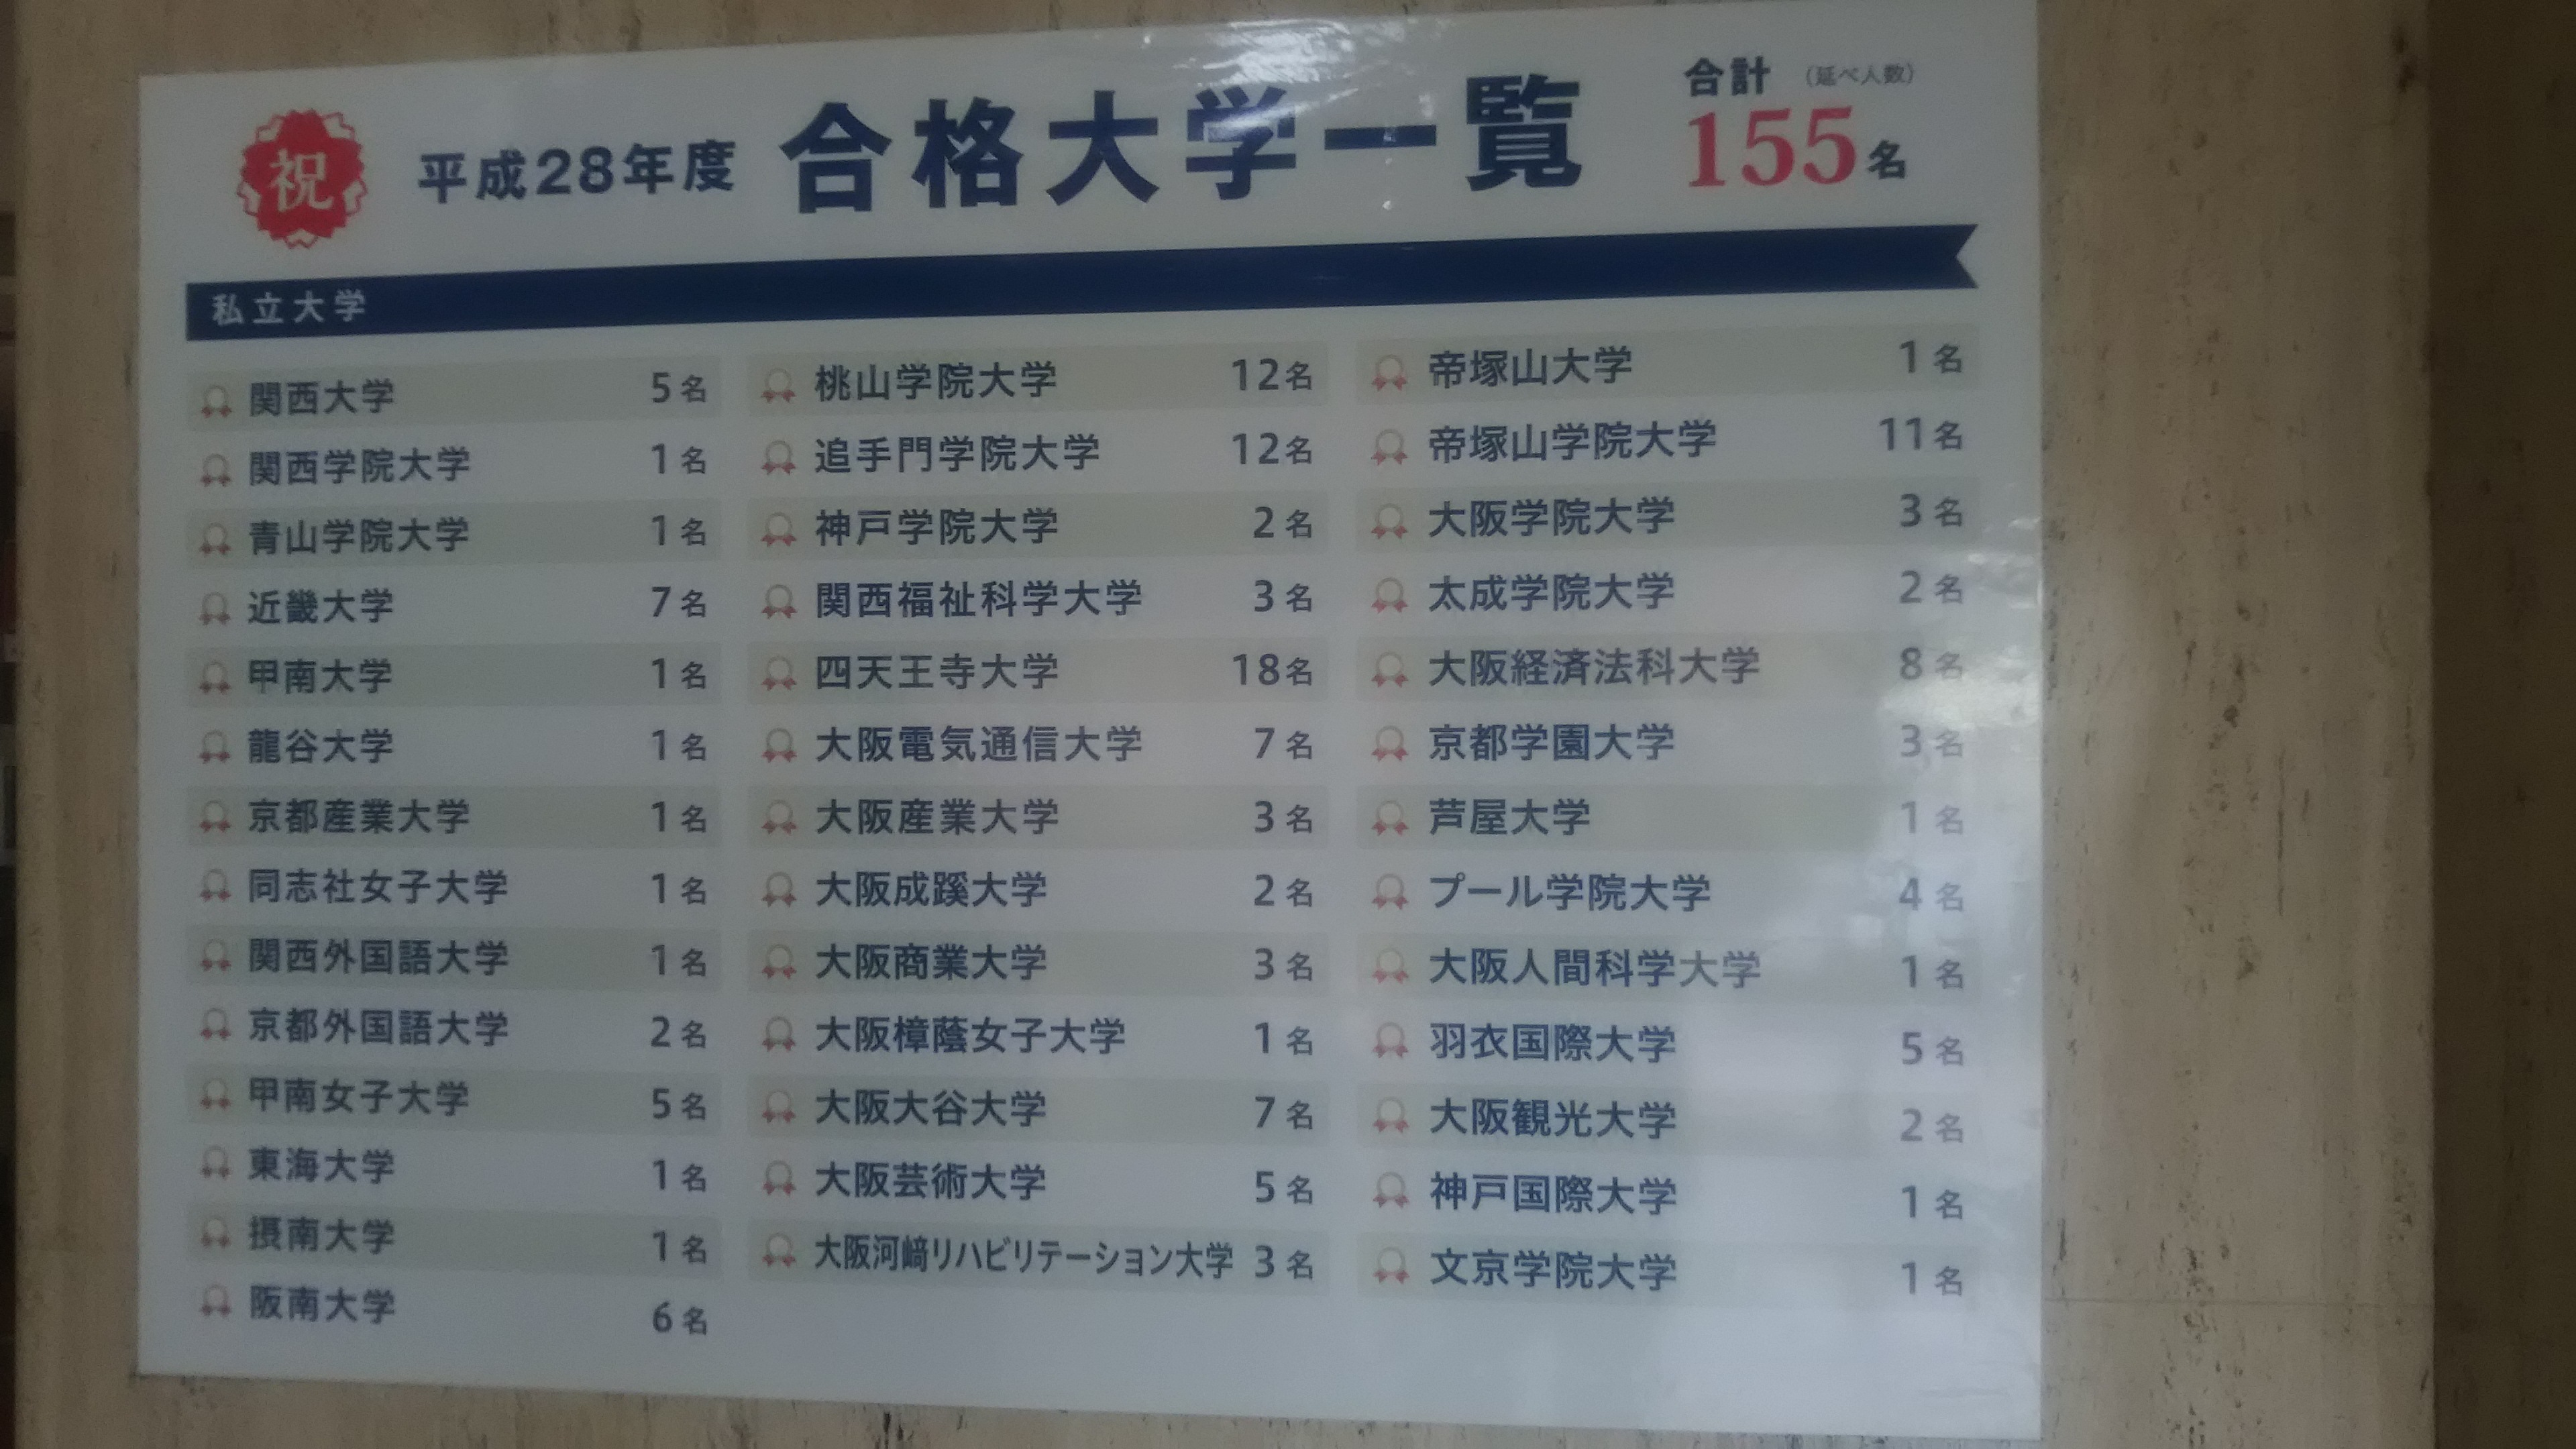 祝
平成28年度 合格大学一覧
合計 (延べ人数)
155名
私立大学
関西大学 5名
関西学院大学 1名
青山学院大学 1名
近畿大学 7名
甲南大学 1名
龍谷大学 1名
京都産業大学 1名
同志社女子大学 1名
関西外国語大学 1名
京都外国語大学 2名
甲南女子大学 5名
東海大学 1名
摂南大学 1名
阪南大学 6名
桃山学院大学 12名
追手門学院大学 12名
神戸学院大学 2名
関西福祉科学大学 3名
四天王寺大学 18名
大阪電気通信大学 7名
大阪産業大学 3名
大阪成蹊大学 2名
大阪商業大学 3名
大阪樟蔭女子大学 1名
大阪大谷大学 7名
大阪芸術大学 5名
大阪河﨑リハビリテーション大学 3名
帝塚山大学 1名
帝塚山学院大学 11名
大阪学院大学 3名
太成学院大学 2名
大阪経済法科大学 8名
京都学園大学 3名
芦屋大学 1名
プール学院大学 4名
大阪人間科学大学 1名
羽衣国際大学 5名
大阪観光大学 2名
神戸国際大学 1名
文京学院大学 1名